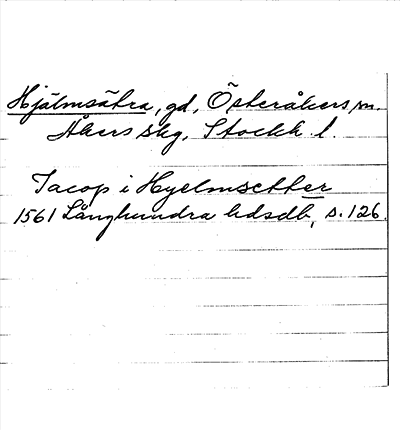 Hjälmsätra, gd, Österåkers sn.
Åkers skg, Stockh. l.
Jacop i Hyelmsetter
1561 Långhundra hdsdb, s. 126.